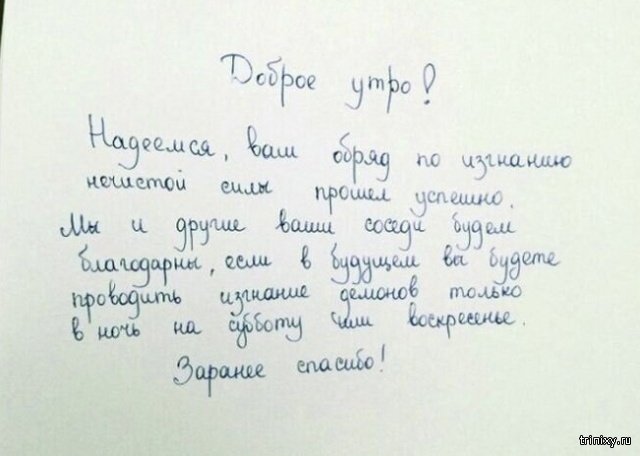 Доброе утро!
Надеемся, ваш обряд по изгнанию
нечистой силы прошел успешно.
Мы и другие ваши соседи будем
благодарны, если в будущем вы будете
проводить изгнание демонов только
в ночь на субботу или воскресенье.
Заранее спасибо!
trinixy.ru